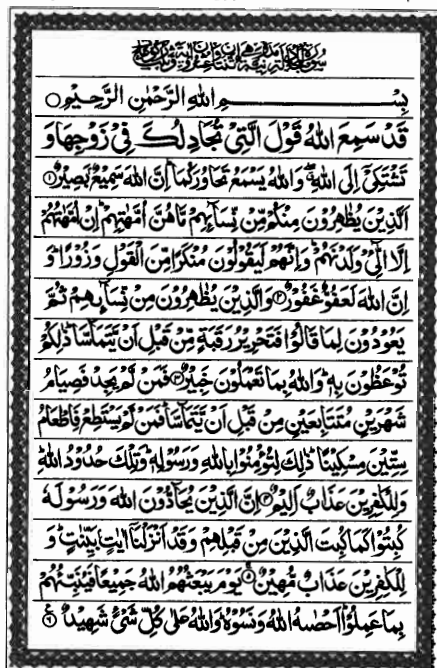 بِسْمِ اللهِ الرَّحْمٰنِ الرَّحِيْمِ ○
قَدْ سَمِعَ اللهُ قَوْلَ الَّتِيْ تُجَادِلُكَ فِيْ زَوْجِهَا وَ
تَشْتَكِيْٓ اِلَى اللهِ ۖ وَاللهُ يَسْمَعُ تَحَاوُرَكُمَا ۭ اِنَّ اللهَ سَمِيْعٌۢ بَصِيْرٌ ۝۱
اَلَّذِيْنَ يُظٰهِرُوْنَ مِنْكُمْ مِّنْ نِّسَآئِهِمْ مَّا هُنَّ اُمَّهٰتِهِمْ ۭ اِنْ اُمَّهٰتُهُمْ
اِلَّا الّٰٓئِيْ وَلَدْنَهُمْ ۭ وَاِنَّهُمْ لَيَقُوْلُوْنَ مُنْكَرًا مِّنَ الْقَوْلِ وَزُوْرًا ۭ وَ
اِنَّ اللهَ لَعَفُوٌّ غَفُوْرٌ ۝۲ وَالَّذِيْنَ يُظٰهِرُوْنَ مِنْ نِّسَآئِهِمْ ثُمَّ
يَعُوْدُوْنَ لِمَا قَالُوْا فَتَحْرِيْرُ رَقَبَةٍ مِّنْ قَبْلِ اَنْ يَّتَمَآسَّا ۭ ذٰلِكُمْ
تُوْعَظُوْنَ بِهٖ ۭ وَاللهُ بِمَا تَعْمَلُوْنَ خَبِيْرٌ ۝۳ فَمَنْ لَّمْ يَجِدْ فَصِيَامُ
شَهْرَيْنِ مُتَتَابِعَيْنِ مِنْ قَبْلِ اَنْ يَّتَمَآسَّا ۚ فَمَنْ لَّمْ يَسْتَطِعْ فَاِطْعَامُ
سِتِّيْنَ مِسْكِيْنًا ۭ ذٰلِكَ لِتُؤْمِنُوْا بِاللهِ وَرَسُوْلِهٖ ۭ وَتِلْكَ حُدُوْدُ اللهِ ۭ
وَلِلْكٰفِرِيْنَ عَذَابٌ اَلِيْمٌ ۝۴ اِنَّ الَّذِيْنَ يُحَآدُّوْنَ اللهَ وَرَسُوْلَهٗ
كُبِتُوْا كَمَا كُبِتَ الَّذِيْنَ مِنْ قَبْلِهِمْ وَقَدْ اَنْزَلْنَآ اٰيٰتٍۢ بَيِّنٰتٍ ۭ وَ
لِلْكٰفِرِيْنَ عَذَابٌ مُّهِيْنٌ ۝۵ يَوْمَ يَبْعَثُهُمُ اللهُ جَمِيْعًا فَيُنَبِّئُهُمْ
بِمَا عَمِلُوْا ۭ اَحْصٰىهُ اللهُ وَنَسُوْهُ ۭ وَاللهُ عَلٰى كُلِّ شَيْءٍ شَهِيْدٌ ۝۶